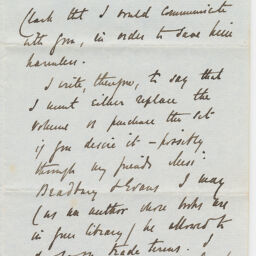 Clark that I would communicate
with you, in order to save him
harmless.
I write, therefore, to say that
I must either replace the
volume or purchase the set
if you desire it – possibly
through my friends Messrs
Bradbury & Evans I may
(as an author whose books are
in your library) be allowed to
trade terms. I